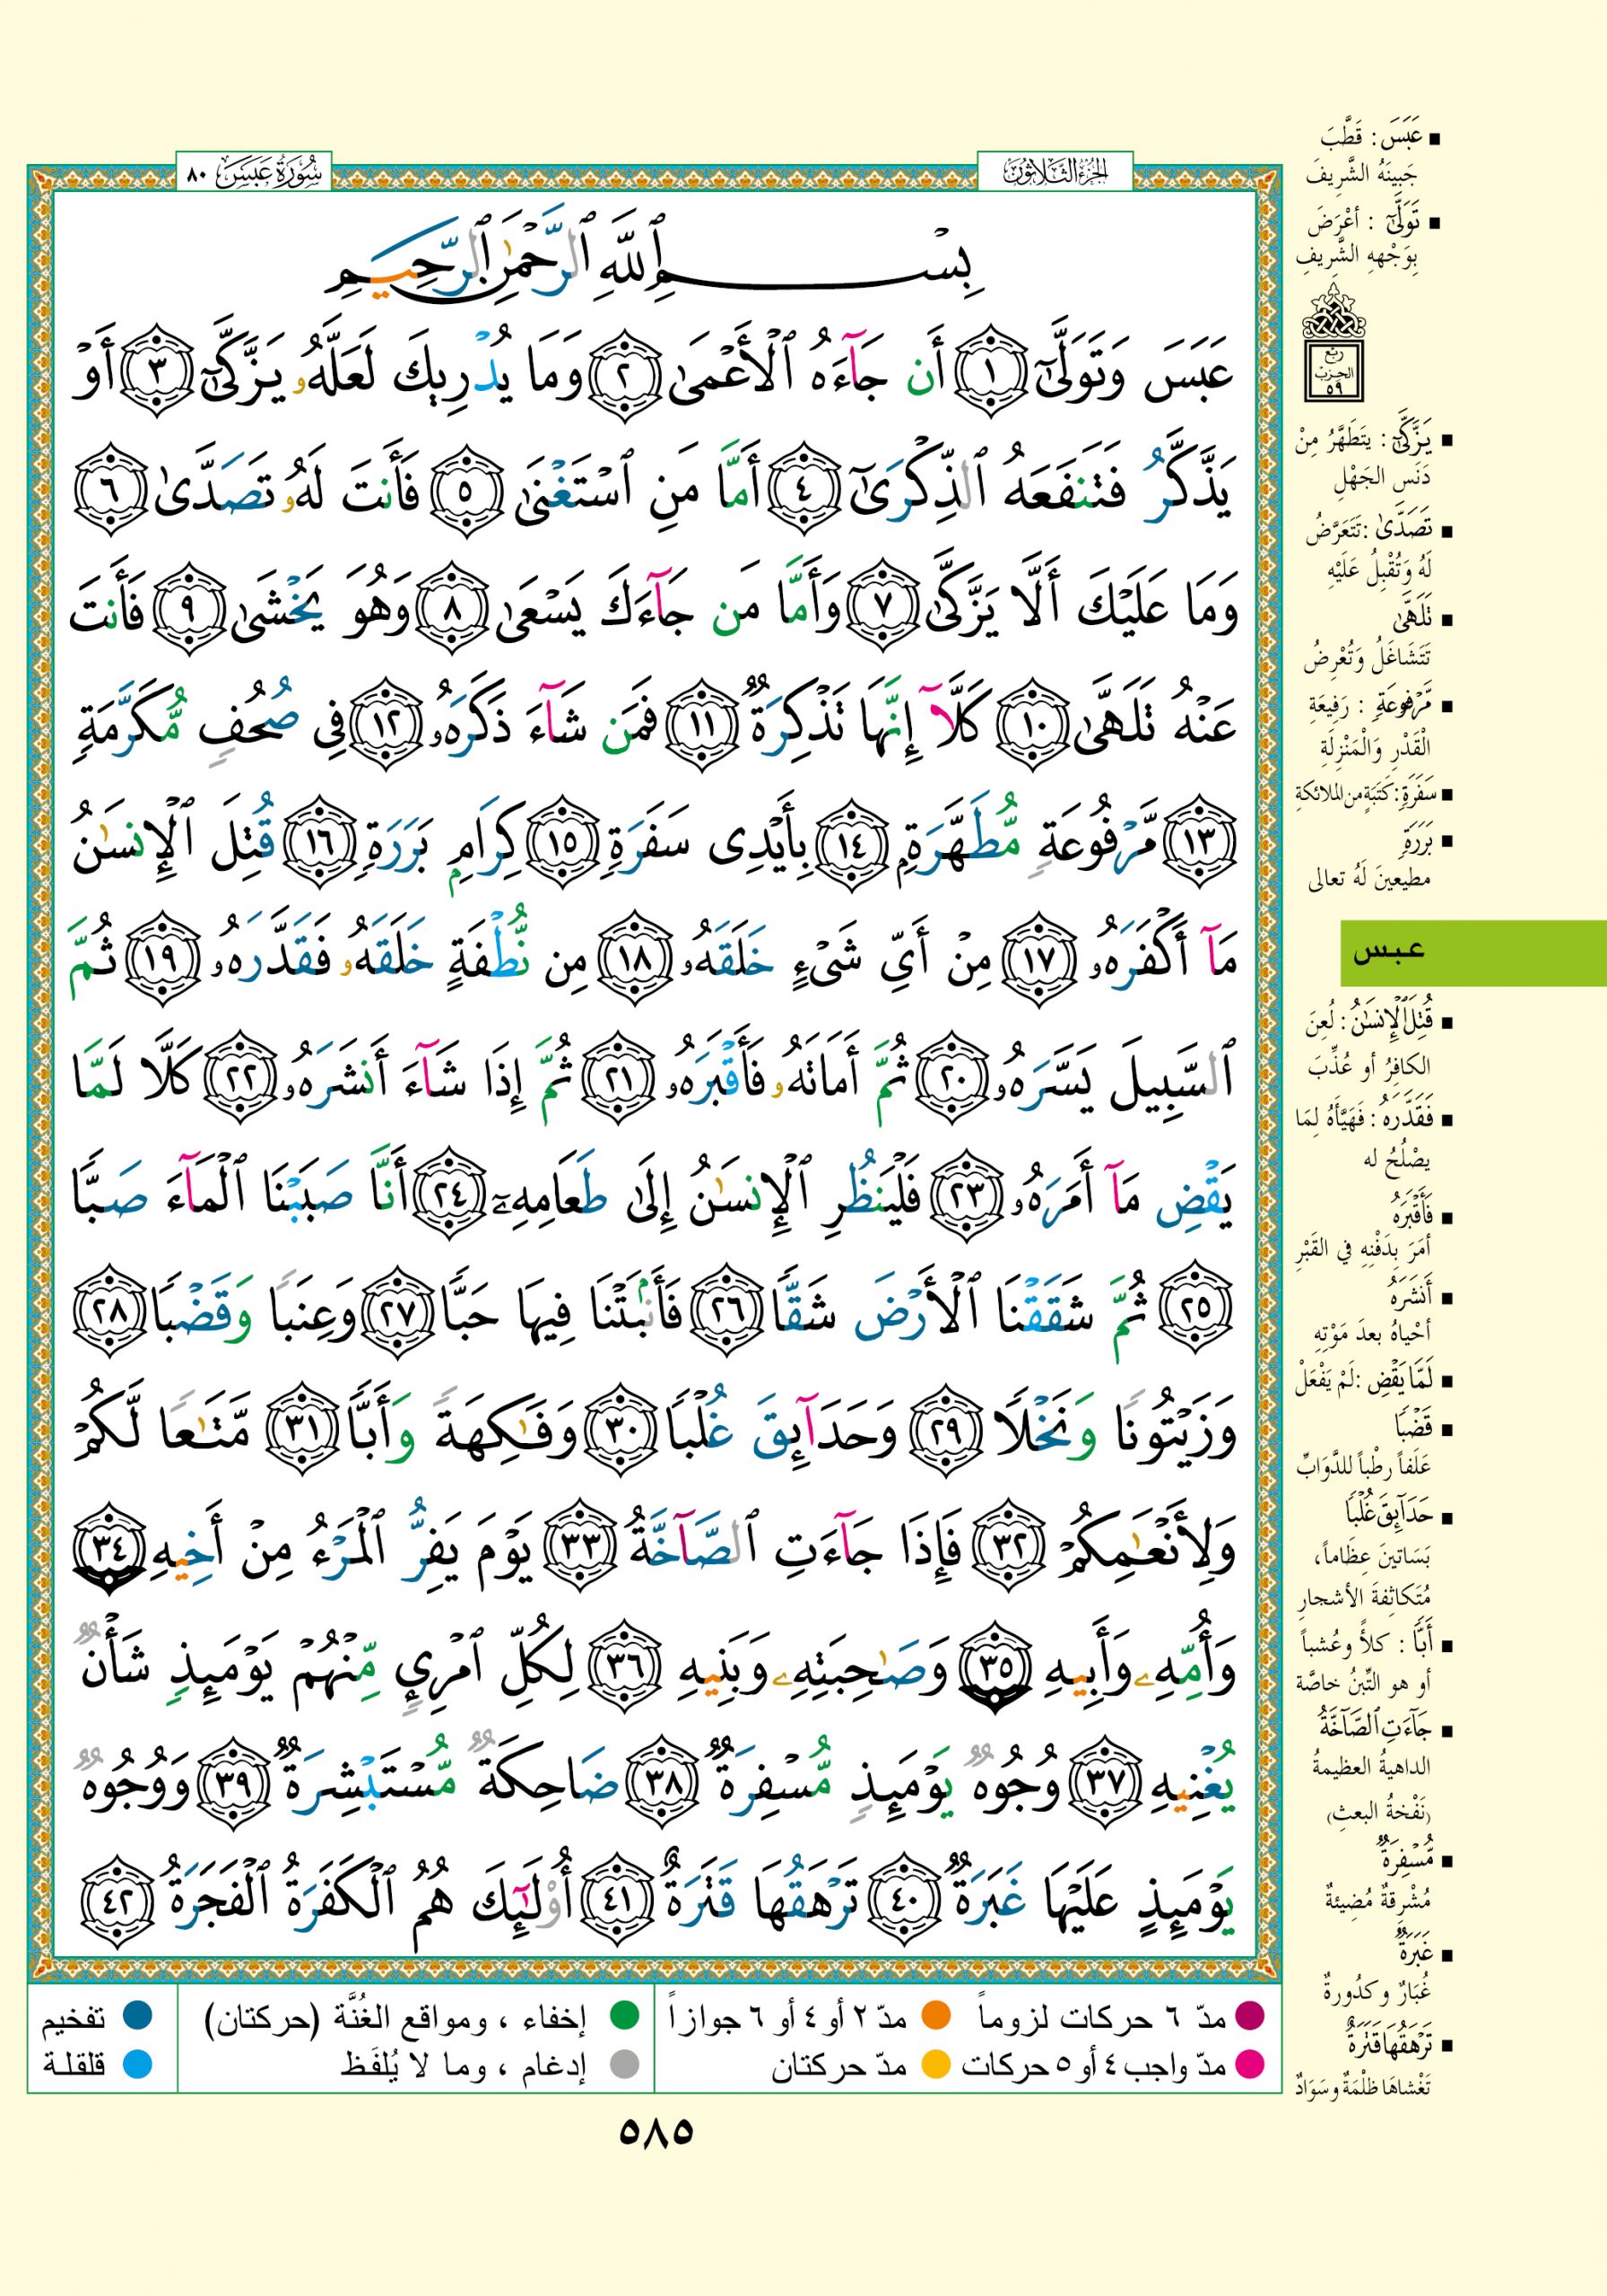 الجزء الثلاثون
سُورَةُ عَبَسَ ٨٠
بِسْمِ ٱللَّهِ ٱلرَّحْمَٰنِ ٱلرَّحِيمِ
عَبَسَ وَتَوَلَّىٰٓ ١ أَن جَآءَهُ ٱلْأَعْمَىٰ ٢ وَمَا يُدْرِيكَ لَعَلَّهُۥ يَزَّكَّىٰٓ ٣ أَوْ
يَذَّكَّرُ فَتَنفَعَهُ ٱلذِّكْرَىٰٓ ٤ أَمَّا مَنِ ٱسْتَغْنَىٰ ٥ فَأَنتَ لَهُۥ تَصَدَّىٰ ٦
وَمَا عَلَيْكَ أَلَّا يَزَّكَّىٰ ٧ وَأَمَّا مَن جَآءَكَ يَسْعَىٰ ٨ وَهُوَ يَخْشَىٰ ٩ فَأَنتَ
عَنْهُ تَلَهَّىٰ ١٠ كَلَّآ إِنَّهَا تَذْكِرَةٌ ١١ فَمَن شَآءَ ذَكَرَهُۥ ١٢ فِى صُحُفٍ مُّكَرَّمَةٍ
١٣ مَّرْفُوعَةٍ مُّطَهَّرَةٍۭ ١٤ بِأَيْدِى سَفَرَةٍ ١٥ كِرَامٍۭ بَرَرَةٍ ١٦ قُتِلَ ٱلْإِنسَٰنُ
مَآ أَكْفَرَهُۥ ١٧ مِنْ أَىِّ شَىْءٍ خَلَقَهُۥ ١٨ مِن نُّطْفَةٍ خَلَقَهُۥ فَقَدَّرَهُۥ ١٩ ثُمَّ
ٱلسَّبِيلَ يَسَّرَهُۥ ٢٠ ثُمَّ أَمَاتَهُۥ فَأَقْبَرَهُۥ ٢١ ثُمَّ إِذَا شَآءَ أَنشَرَهُۥ ٢٢ كَلَّا لَمَّا
يَقْضِ مَآ أَمَرَهُۥ ٢٣ فَلْيَنظُرِ ٱلْإِنسَٰنُ إِلَىٰ طَعَامِهِۦٓ ٢٤ أَنَّا صَبَبْنَا ٱلْمَآءَ صَبًّا
٢٥ ثُمَّ شَقَقْنَا ٱلْأَرْضَ شَقًّا ٢٦ فَأَنۢبَتْنَا فِيهَا حَبًّا ٢٧ وَعِنَبًا وَقَضْبًا ٢٨
وَزَيْتُونًا وَنَخْلًا ٢٩ وَحَدَآئِقَ غُلْبًا ٣٠ وَفَٰكِهَةً وَأَبًّا ٣١ مَّتَٰعًا لَّكُمْ
وَلِأَنْعَٰمِكُمْ ٣٢ فَإِذَا جَآءَتِ ٱلصَّآخَّةُ ٣٣ يَوْمَ يَفِرُّ ٱلْمَرْءُ مِنْ أَخِيهِ ٣٤
وَأُمِّهِۦ وَأَبِيهِ ٣٥ وَصَٰحِبَتِهِۦ وَبَنِيهِ ٣٦ لِكُلِّ ٱمْرِئٍ مِّنْهُمْ يَوْمَئِذٍ شَأْنٌ
يُغْنِيهِ ٣٧ وُجُوهٌ يَوْمَئِذٍ مُّسْفِرَةٌ ٣٨ ضَاحِكَةٌ مُّسْتَبْشِرَةٌ ٣٩ وَوُجُوهٌ
يَوْمَئِذٍ عَلَيْهَا غَبَرَةٌ ٤٠ تَرْهَقُهَا قَتَرَةٌ ٤١ أُو۟لَٰٓئِكَ هُمُ ٱلْكَفَرَةُ ٱلْفَجَرَةُ ٤٢
عَبَسَ : قَطَّبَ
جَبِينَهُ الشَّرِيفَ
تَوَلَّىٰٓ : أعْرَضَ
بِوَجْهِهِ الشَّرِيفِ
ربع
الحزب
٥٩
يَزَّكَّىٰٓ : يتَطَهَّرُ مِنْ
دَنَسِ الجَهْلِ
تَصَدَّىٰ : تَتَعَرَّضُ
لَهُ وَتُقْبِلُ عَلَيْهِ
تَلَهَّىٰ
تَتَشَاغَلُ وَتُعْرِضُ
مَّرْفُوعَةٍ : رَفِيعَةِ
الْقَدْرِ وَالْمَنْزِلَةِ
سَفَرَةٍ : كَتَبَةٍ من الملائكة
بَرَرَةٍ
مطيعينَ لَهُ تعالى
عبس
قُتِلَ ٱلْإِنسَٰنُ : لُعِنَ
الكافِرُ أو عُذِّبَ
فَقَدَّرَهُ : فَهَيَّأهُ لِمَا
يصْلُحُ له
فَأَقْبَرَهُ
أمَرَ بِدَفْنِهِ في القَبْرِ
أَنشَرَهُ
أحْياهُ بعدَ مَوْتِهِ
لَمَّا يَقْضِ : لَمْ يَفْعَلْ
قَضْبًا
عَلَفاً رطْباً للدَّوَابِّ
حَدَآئِقَ غُلْبًا
بَسَاتينَ عِظَاماً،
مُتَكاثِفةَ الأشجارِ
أَبًّا : كلأً وعُشباً
أو هو التِّبنُ خاصَّة
جَآءَتِ ٱلصَّآخَّةُ
الداهيةُ العظيمةُ
(نَفْخةُ البعثِ)
مُّسْفِرَةٌ
مُشْرِقةٌ مُضِيئةٌ
غَبَرَةٌ
غُبَارٌ وكدُورةٌ
تَرْهَقُهَا قَتَرَةٌ
تَغْشاهَا ظلْمَةٌ وسَوَادٌ
مدّ ٦ حركات لزوماً مدّ ٢ أو ٤ أو ٦ جوازاً إخفاء ، ومواقع الغُنَّة (حركتان) تفخيم
مدّ واجب ٤ أو ٥ حركات مدّ حركتان إدغام ، وما لا يُلفَظ قلقلة
٥٨٥